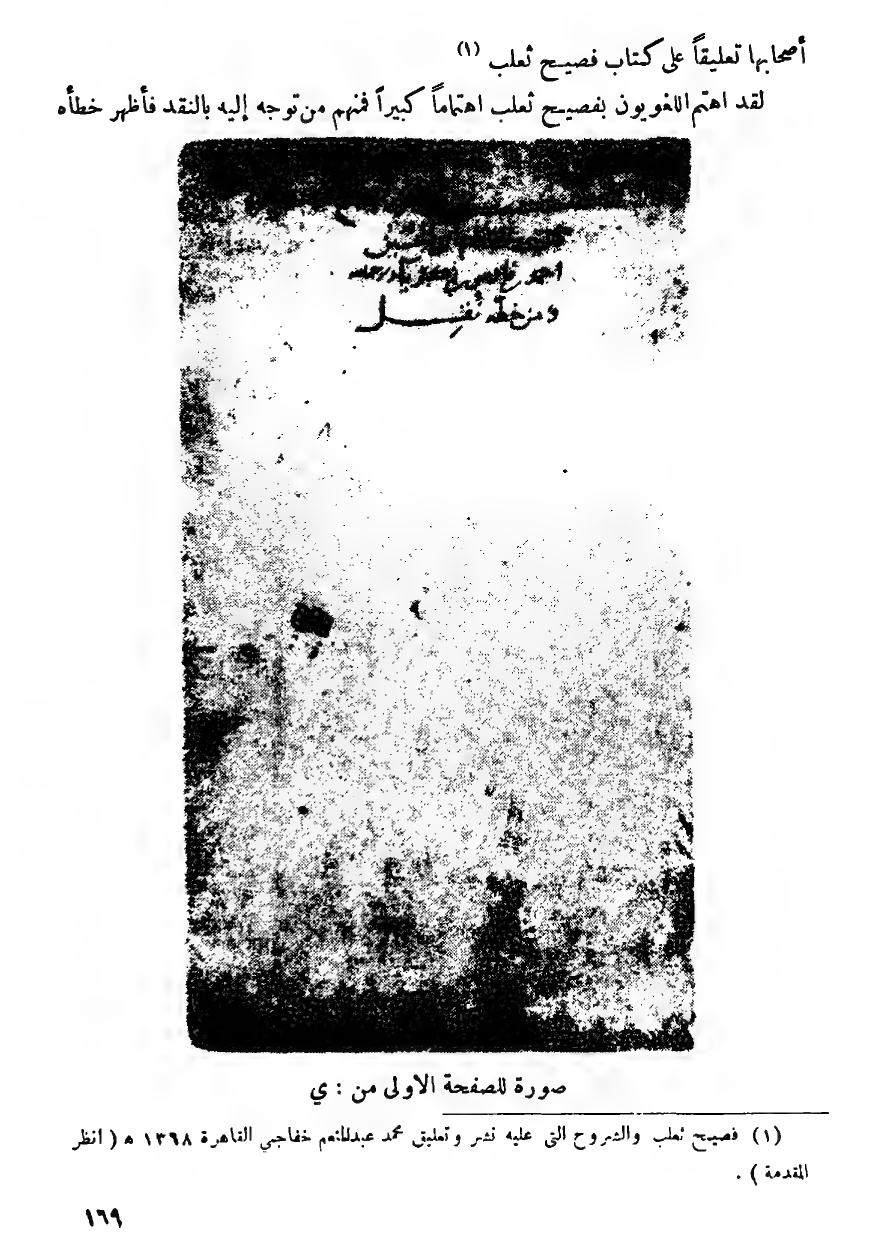 أصحابها تعليقاً على كتاب فصيح ثعلب (١)
لقد اهتم اللغويون بفصيح ثعلب اهتماماً كبيراً فمنهم من توجه إليه بالنقد فأظهر خطأه
ومن خطه نقل
صورة للصفحة الاولى من : ي
(١) فصيح ثعلب والشروح التي عليه نشر وتعليق محمد عبدالمنعم خفاجي القاهرة ١٣٦٨ ه ( انظر
المقدمة ) .
١٦٩